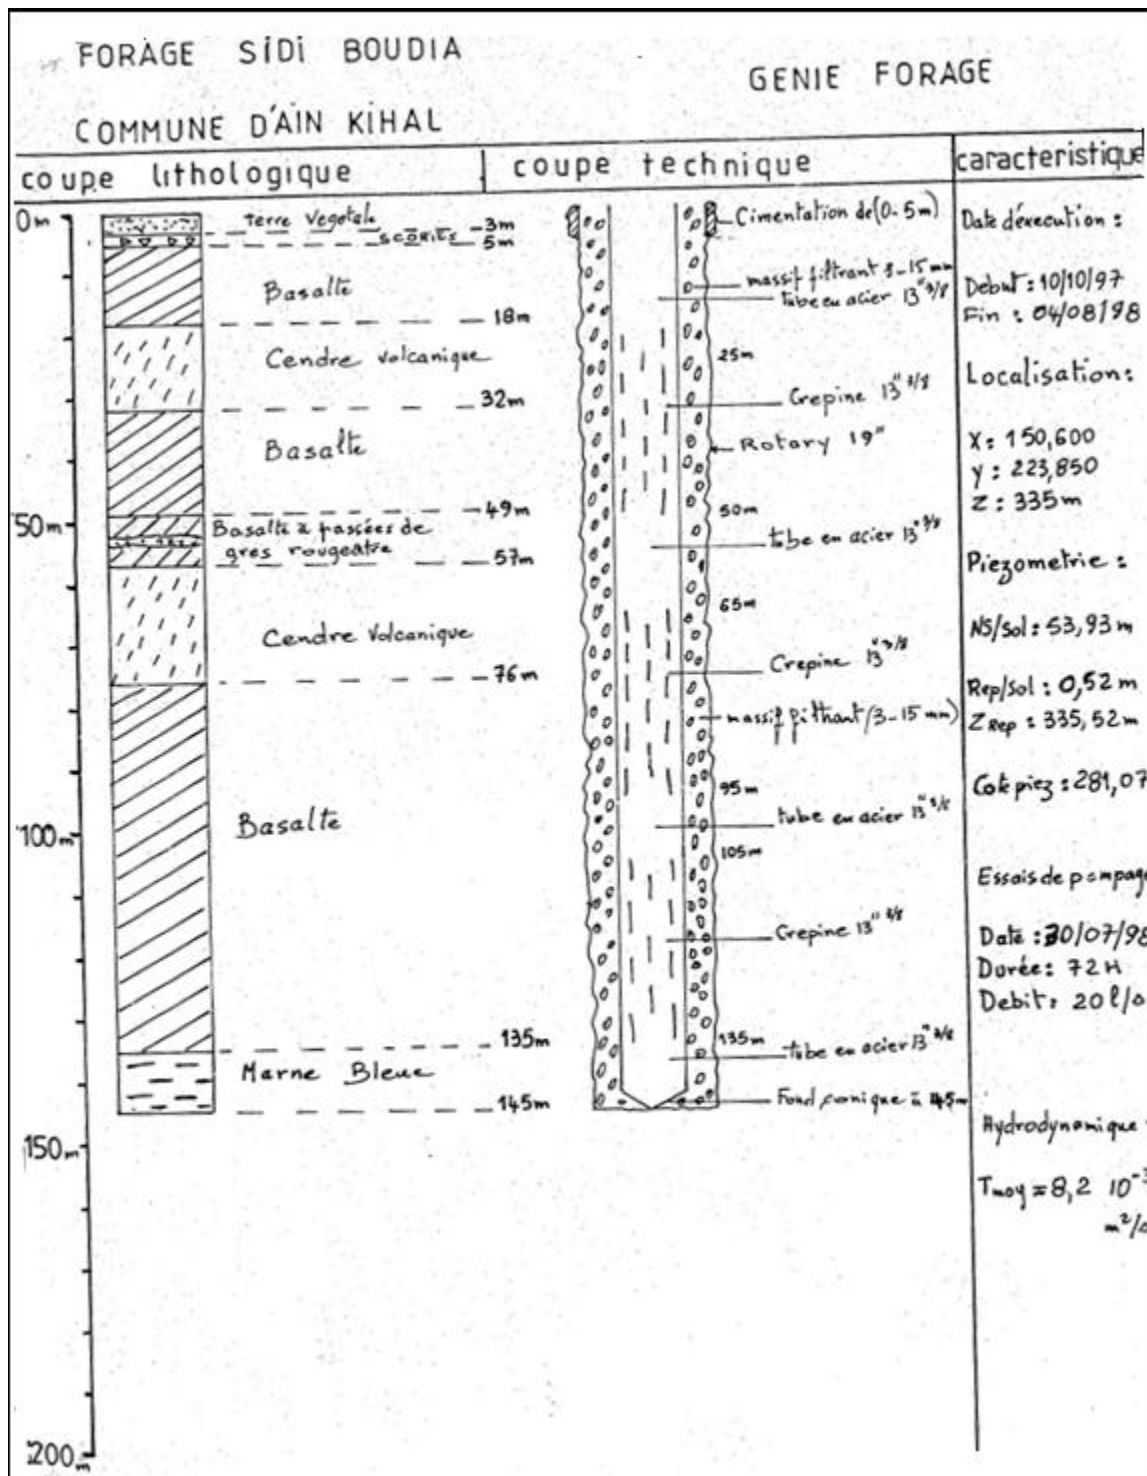 FORAGE SIDI BOUDIA
COMMUNE D'AIN KIHAL
GENIE FORAGE
coupe lithologique
coupe technique
caracteristique
0m
50m
100m
150m
200m
Terre Vegetale
3m
SCORIES
5m
Basalte
18m
Cendre volcanique
32m
Basalte
49m
Basalte à passées de
gres rougeatre
57m
Cendre Volcanique
76m
Basalte
135m
Marne Bleue
145m
Cimentation de (0-5m)
massif filtrant 3-15 mm
tube en acier 13"3/8
25m
Crepine 13"3/8
Rotary 19"
50m
tube en acier 13"3/8
65m
Crepine 13"3/8
massif filtrant (3-15 mm)
95m
tube en acier 13"3/8
105m
Crepine 13"3/8
135m
tube en acier 13"3/8
Fond conique à 145m
Date d'éxecution :
Debut : 10/10/97
Fin : 04/08/98
Localisation :
X : 150,600
Y : 223,850
Z : 335m
Piezometrie :
NS/Sol : 53,93 m
Rep/Sol : 0,52 m
Z Rep : 335,52 m
Cote piez : 281,07
Essais de pompage
Date : 30/07/98
Durée : 72H
Debit : 20 l/s
Hydrodynamique
Tmoy = 8,2 10⁻³
m²/s